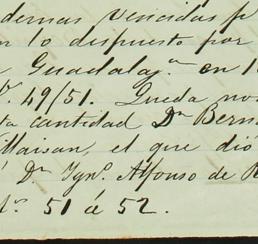 demas vencidas p
n lo dispuesto por
Guadalaj.ª en 1
49/51. Queda no
ta cantidad Dn Bern
el que dio
Dn Ign.º Alfonso de R
51 é 52.